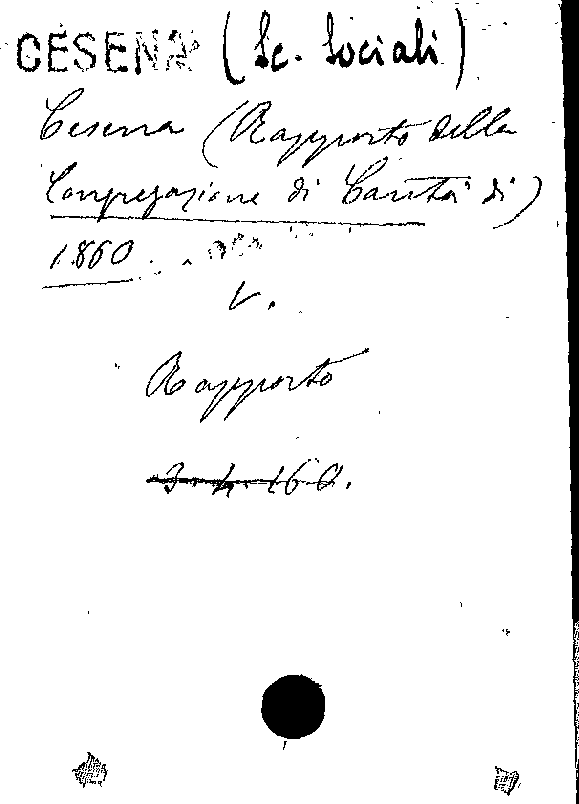 CESENA (Sc. Sociali)
Cesena (Rapporto della
Congregazione di Carità di)
1860.
V.
Rapporto
3. 4. 160.